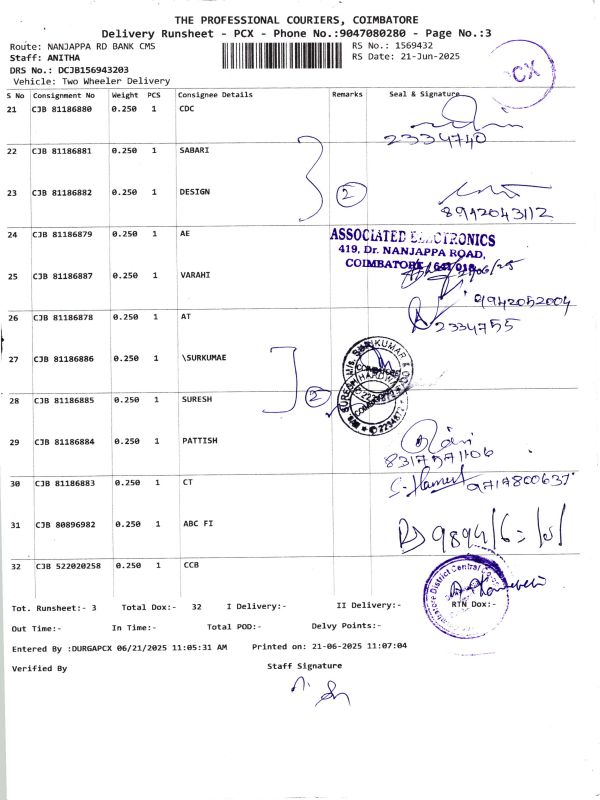 THE PROFESSIONAL COURIERS, COIMBATORE
Delivery Runsheet - PCX - Phone No.:9047080280 - Page No.:3
Route: NANJAPPA RD BANK CMS RS No.: 1569432
Staff: ANITHA RS Date: 21-Jun-2025
DRS No.: DCJB156943203
Vehicle: Two Wheeler Delivery
CX
S No Consignment No Weight PCS Consignee Details Remarks Seal & Signature
21 CJB 81186880 0.250 1 CDC
2334740
22 CJB 81186881 0.250 1 SABARI
23 CJB 81186882 0.250 1 DESIGN 2
24 CJB 81186879 0.250 1 AE
ASSOCIATED ELECTRONICS
419, Dr. NANJAPPA ROAD,
COIMBATORE - 641 018
25 CJB 81186887 0.250 1 VARAHI
9942052004
26 CJB 81186878 0.250 1 AT
2334755
27 CJB 81186886 0.250 1 \SURKUMAE
28 CJB 81186885 0.250 1 SURESH 2
29 CJB 81186884 0.250 1 PATTISH
30 CJB 81186883 0.250 1 CT
9717800637
31 CJB 80896982 0.250 1 ABC FI
32 CJB 522020258 0.250 1 CCB
District Central
Tot. Runsheet:- 3 Total Dox:- 32 I Delivery:- II Delivery:- RTN Dox:-
Out Time:- In Time:- Total POD:- Delvy Points:-
Entered By :DURGAPCX 06/21/2025 11:05:31 AM Printed on: 21-06-2025 11:07:04
Verified By Staff Signature